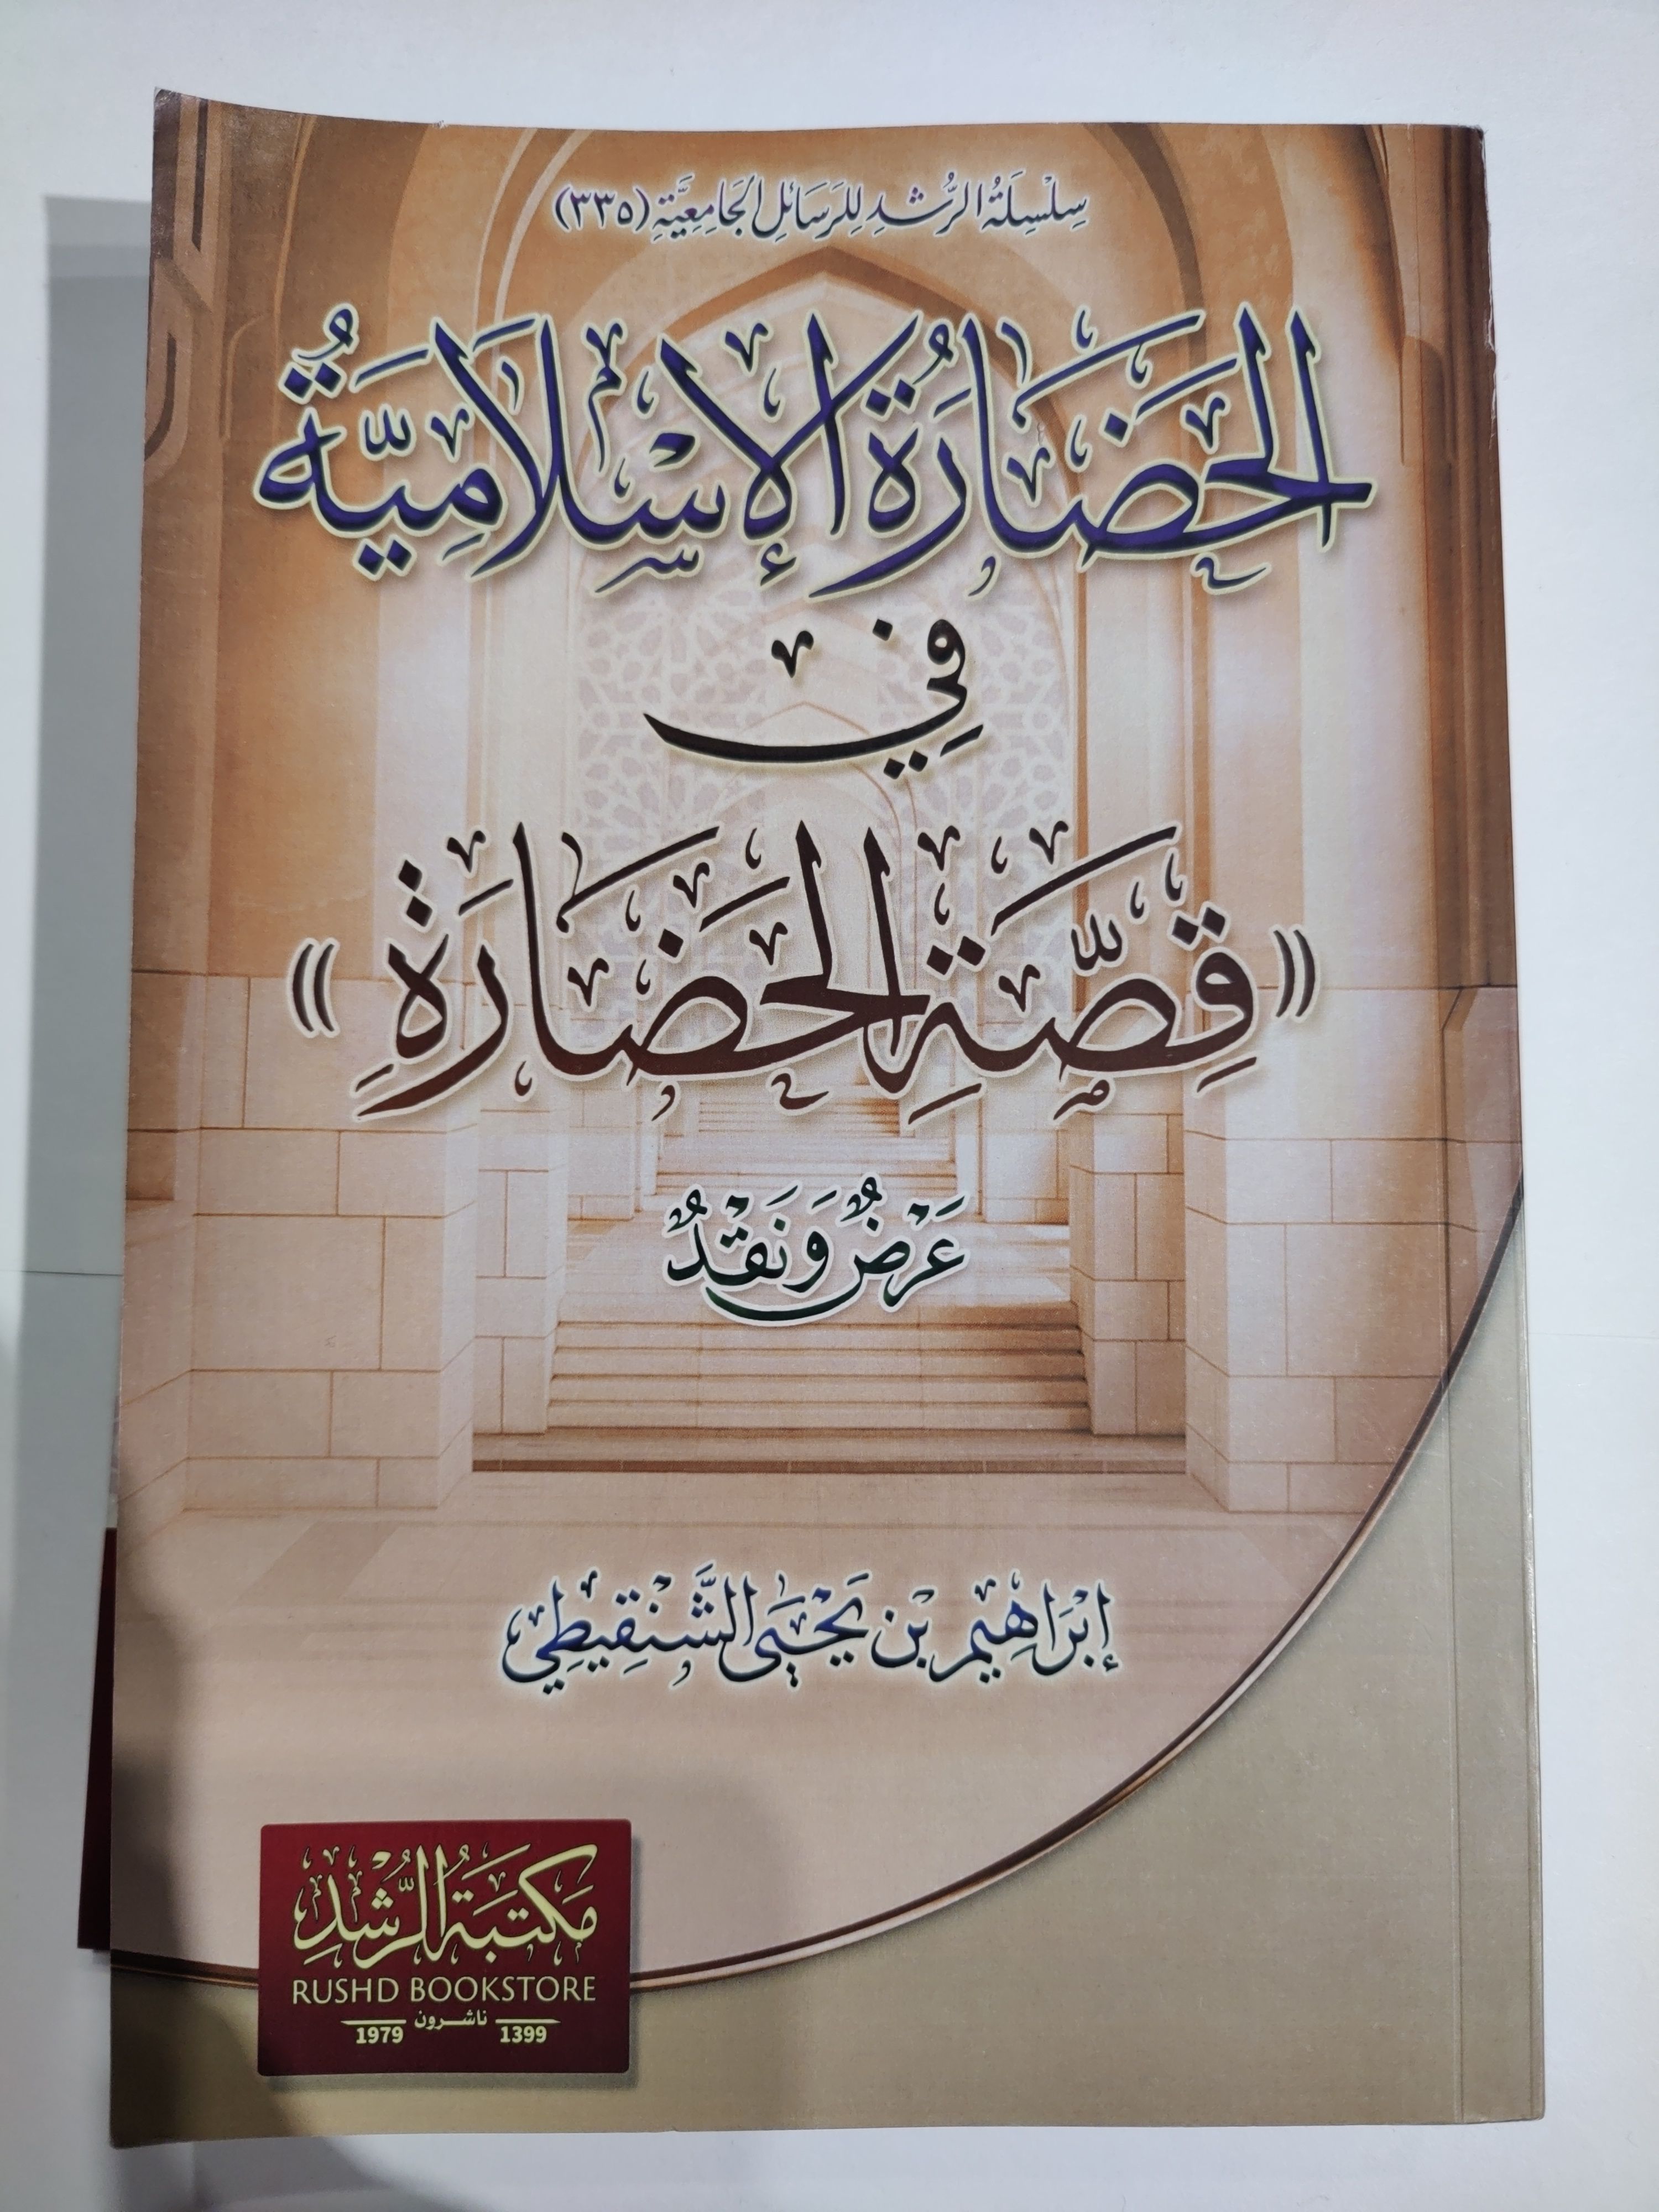 سِلْسِلَةُ الرُّشْدِ لِلرَسَائِلِ الجَامِعِيَّةِ (٣٣٥)
الحَضَارَةُ الإِسْلَامِيَّةُ
فِي
((قِصَّةِ الحَضَارَةِ))
عَرْضٌ وَنَقْدٌ
إِبْرَاهِيم بْن يَحْيَى الشَّنْقِيطِي
مَكتَبَةُ الرُّشْدِ
RUSHD BOOKSTORE
1979 ناشرون 1399